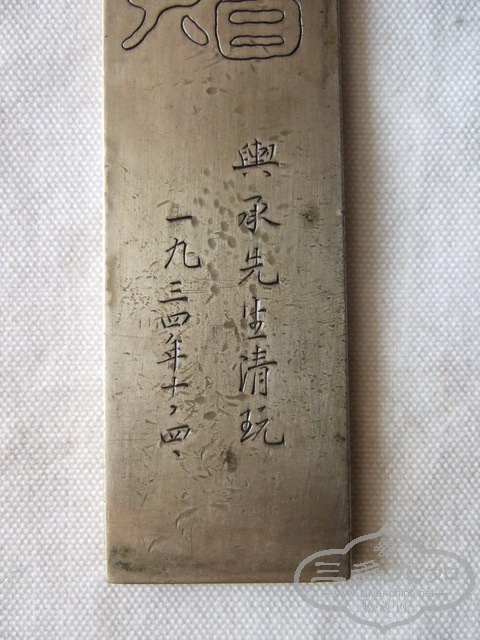 輿承先生清玩
一九三四年十、四、